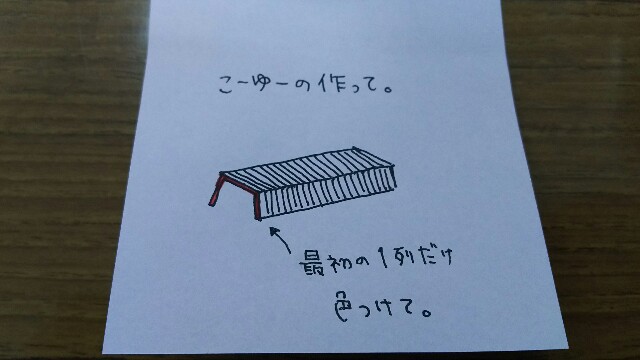 こーゆーの作って。
最初の1列だけ
色つけて。